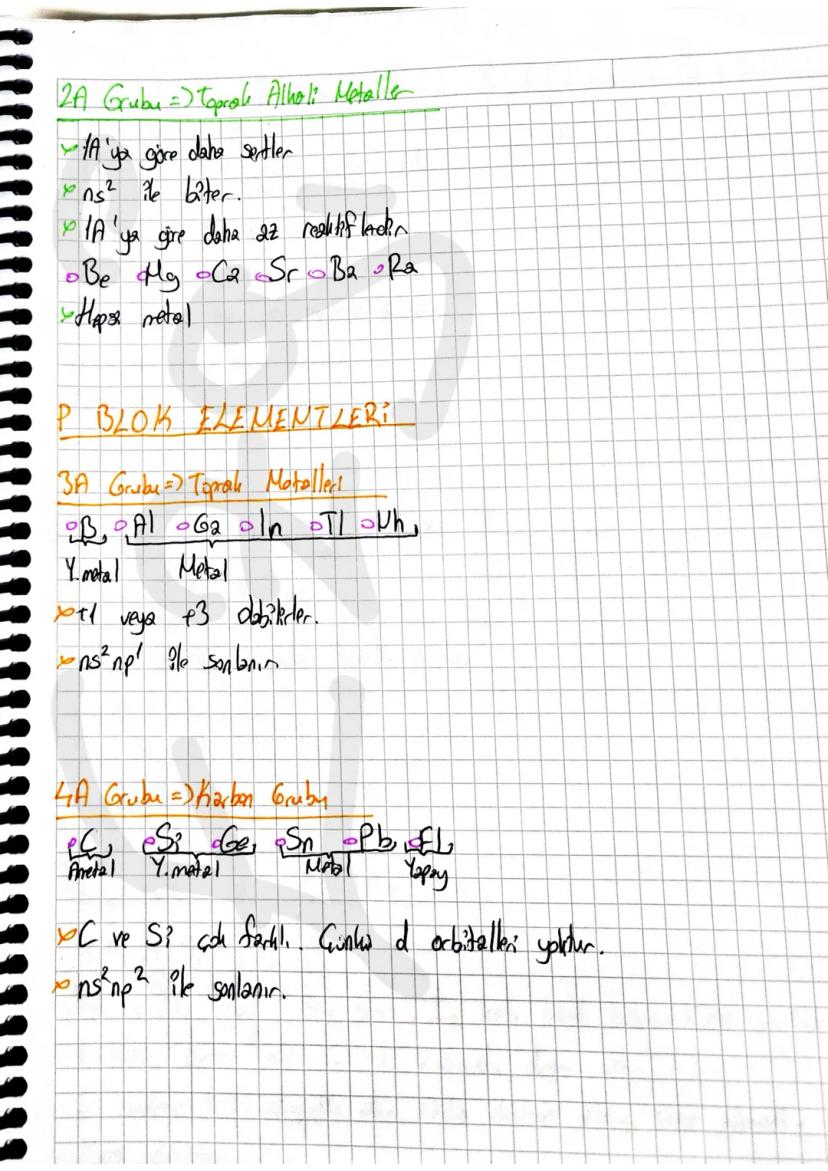 2A Grubu => Toprak Alkali Metaller
1A'ya göre daha sertler
ns² ile biter.
1A'ya göre daha az reaktiflerdir
Be Mg Ca Sr Ba Ra
Hepsi metal
P BLOK ELEMENTLERİ
3A Grubu => Toprak Metalleri
B Al Ga In Tl Nh
Y.metal Metal
+1 veya +3
ns²np¹ ile sonlanır
4A Grubu => Karbon Grubu
C Si Ge Sn Pb FL
Ametal Y.metal Metal Yapay
C ve Si çok farklı. Çünkü d orbitalleri yoktur.
ns²np² ile sonlanır.